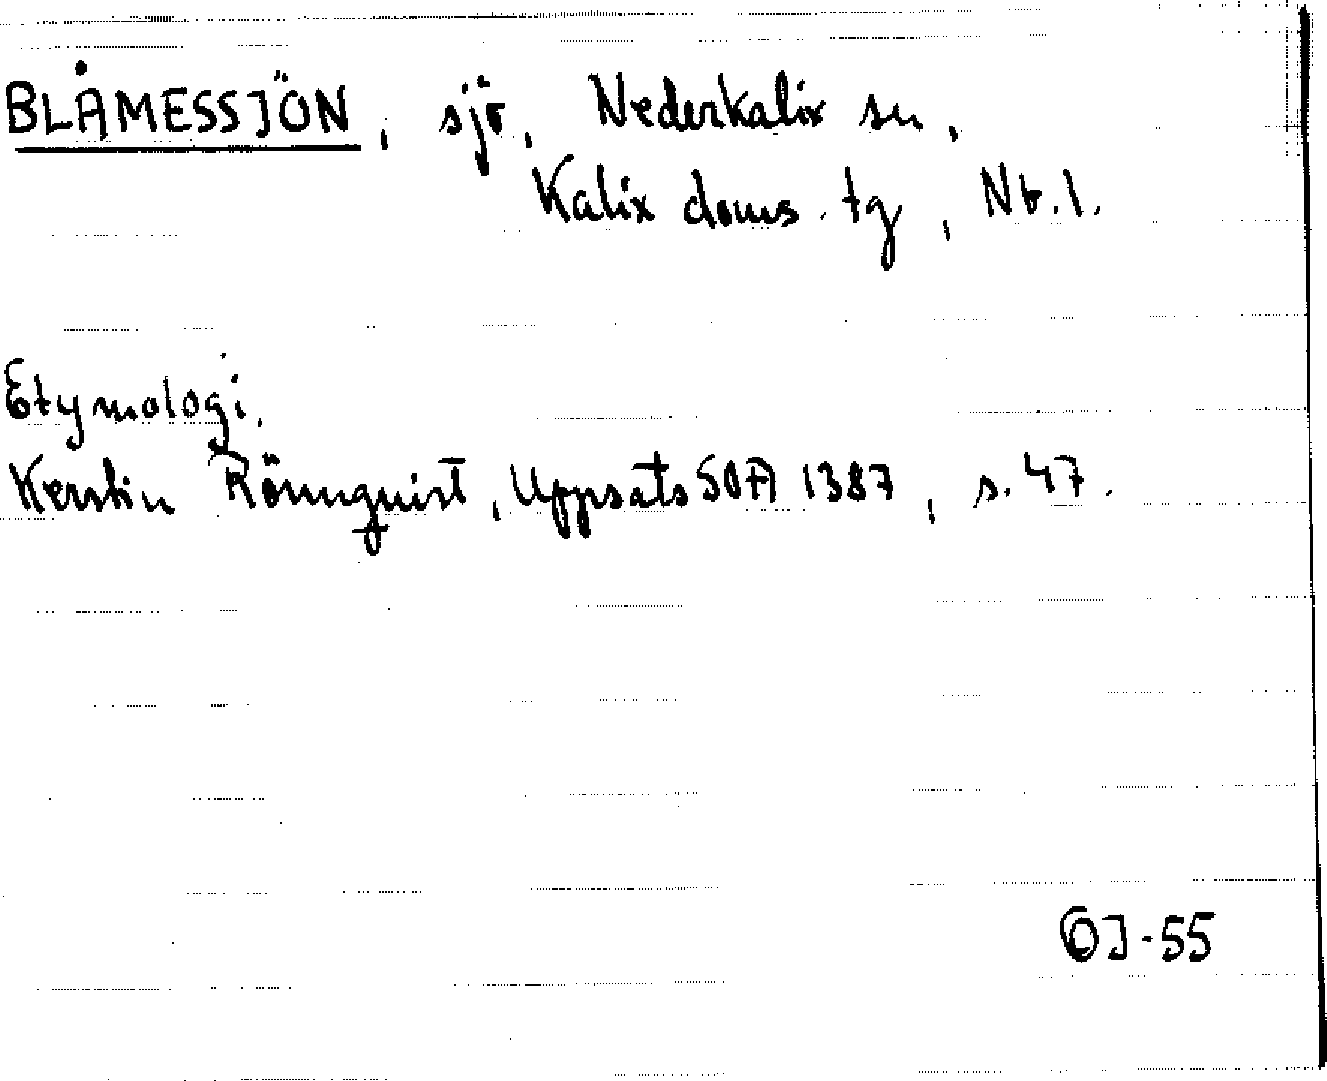 BLÅMESSJÖN, sjö, Nederkalix sn,
Kalix doms.tg, Nb.l.
Etymologi.
Kerstin Rönnquist, Uppsats SOA 1387, s. 47.
OJ-55